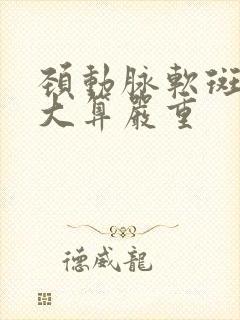 頸動脈軟斑
大算嚴重
德威龍